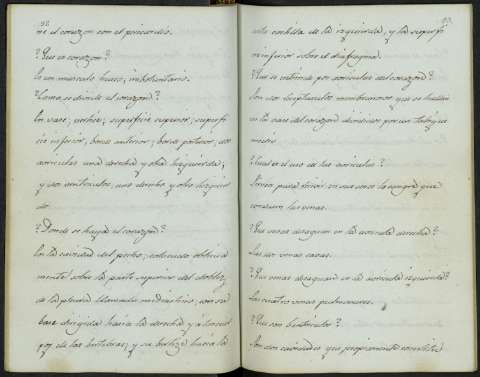 92
ne el corazon con el pericardio.
?Que es corazon?
Es un musculo hueco, involuntario.
?Como se divide el corazon?
En vase, vertice, superficie superior, superfi
cie inferior, borde anterior, borde posterior, dos
auriculas una derecha y otra hizquierda;
y dos ventriculos, uno derecho y otro hizquier
do.
?Donde se haya el corazon?
En la cavidad del pecho, colocado oblicua
mente sobre la parte superior del doblez
de la pleura llamado mediastino, con su
base dirigida hacia la derecha y á los cuer
pos de las bertebras; y su bertize hacia la
93.
sta costilla de la izquierda, y la superfi
cie inferior sobre el diafragma.
?Que se entiende por auriculas del corazon?
Son dos receptaculos membranosos que se hallan
en la vase del corazon divididos por un tabique
medio.
?Cual es el uso de las auriculas?
Sirven para recivir en sus senos la sangre que
conducen las venas.
?Que venas desaguan en la auricula derecha?
Las dos venas cavas.
?Que venas desaguan en la auricula izquierda?
Las cuatro venas pulmonares.
?Que son bentriculos?
Son dos cavidades que propiamente constitu